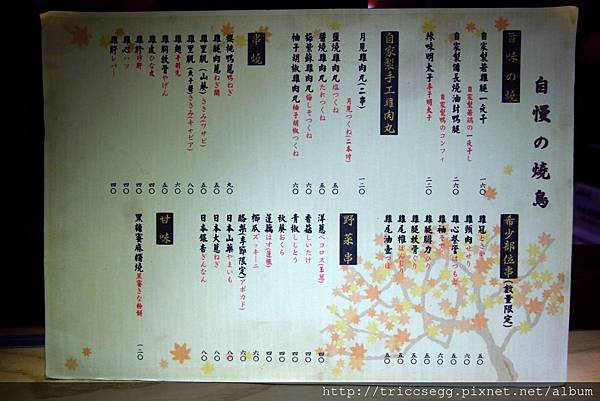 自慢の燒鳥
旨味の燒
自家製若雞腿一夜干 自家製若鶏の一夜干し 一六〇
自家製備長燒油封鴨腿 自家製鴨のコンフィ 二六〇
辣味明太子 辛子明太子 二二〇
自家製手工雞肉丸
月見雞肉丸(二串) 月見つくね(二本付) 一二〇
鹽燒雞肉丸 塩つくね 五〇
醬燒雞肉丸 たれつくね 五〇
梅紫蘇雞肉丸 梅しそつくね 六〇
柚子胡椒雞肉丸 柚子胡椒つくね 六〇
串燒
櫻桃鴨蔥 鴨ねぎ 九〇
雞腿肉蔥 ねぎ間 五〇
雞里肌(山葵) ささみ(ワサビ) 五〇
雞里肌(魚子醬) ささみ(キャビア) 八〇
雞翅 手羽先 六〇
雞胸軟骨 やげん
雞皮 ひな皮 四〇
雞胗 砂肝 四〇
雞心 ハツ 四〇
雞肝 レバー 四〇
希少部位串(數量限定)
雞冠 とさか 五〇
雞頸肉 せせり 六〇
雞心卷管 はつもと 五〇
雞柚 そで 六〇
雞腿腳力 五〇
雞腿軟骨 五〇
雞尾椎 ぼんじり 五〇
雞尾油壺 五〇
野菜串
洋蔥 ペコロス(玉葱) 四〇
香菇 しいたけ 四〇
青椒 ししとう 四〇
秋葵 おくら 四〇
蓮藕 はす(蓮根) 四〇
櫛瓜 ズッキーニ 六〇
酪梨(季節限定) アボカド 六〇
日本山藥 やまいも 八〇
日本大蔥 ねぎ 八〇
日本銀杏 ぎんなん 八〇
甘味
黑糖蕎麻糬燒 黒蜜きな粉餅 一二〇
http://triccsegg.pixnet.net/album